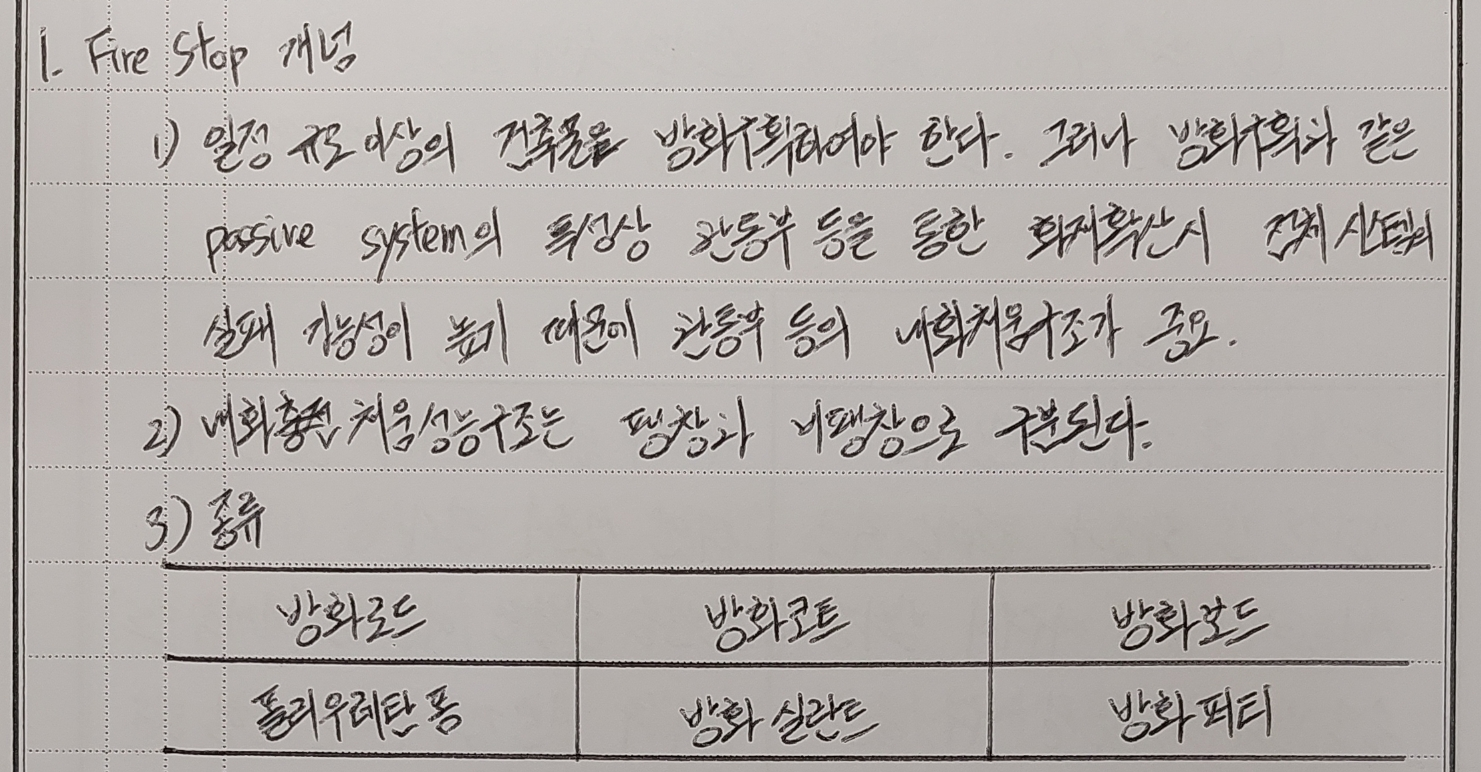 1. Fire Stop 개념
1) 일정 규모 이상의 건축물을 방화구획하여야 한다. 그러나 방화구획과 같은
passive system의 특성상 관통부 등을 통한 화재확산시 전체 시스템의
실패 가능성이 높기 때문에 관통부 등의 내화채움구조가 중요.
2) 내화충전 채움성능구조는 팽창과 비팽창으로 구분된다.
3) 종류
방화로드 방화코트 방화보드
폴리우레탄 폼 방화 실란트 방화 퍼티